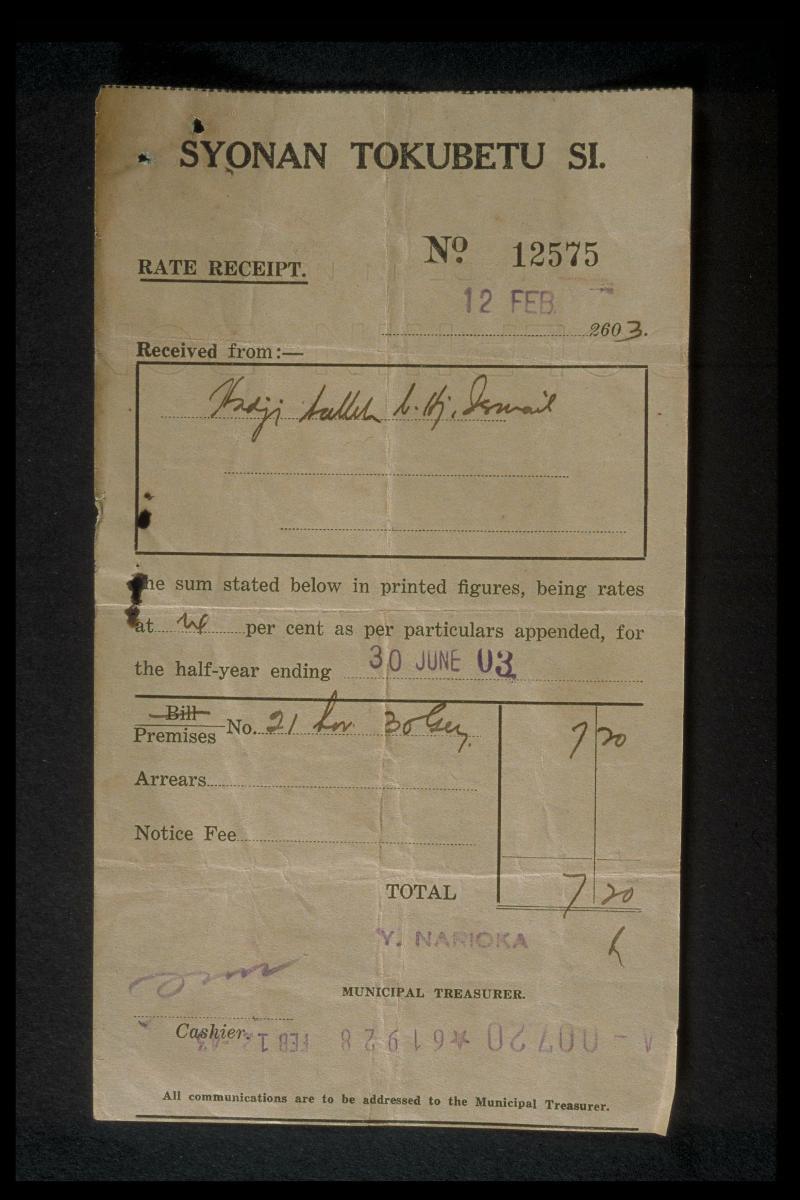 SYONAN TOKUBETU SI.
No. 12575
RATE RECEIPT.
12 FEB.
2603.
Received from:—
Hadji Salleh b. Hj. Ismail
The sum stated below in printed figures, being rates
at per cent as per particulars appended, for
the half-year ending 30 JUNE 03
Bill
Premises No. 21 Lor. 30 Gey. 7 20
Arrears
Notice Fee
TOTAL 7 20
Y. NARIOKA
MUNICIPAL TREASURER.
Cashier.
All communications are to be addressed to the Municipal Treasurer.